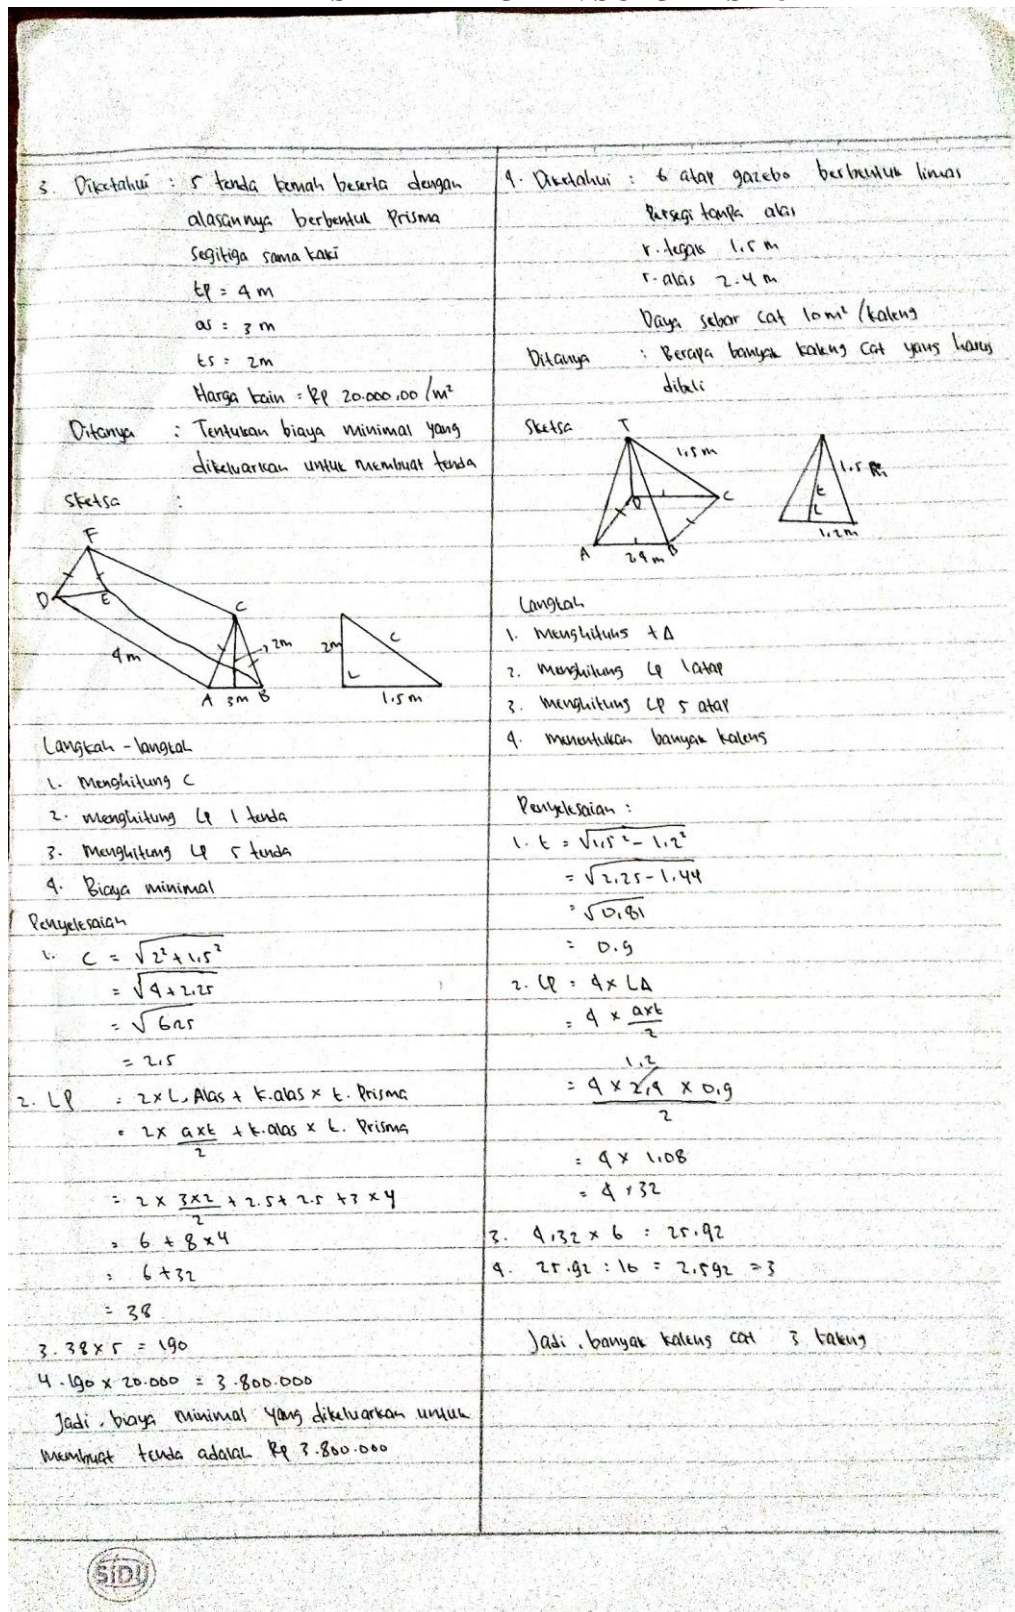 3. Diketahui : 5 tenda kemah beserta dengan
alasannya berbentuk Prisma
Segitiga sama kaki
tp = 4 m
as = 3 m
ts = 2m
Harga kain = Rp 20.000,00 /m²
Ditanya : Tentukan biaya minimal yang
dikeluarkan untuk membuat tenda
Sketsa :
F
D
E
C
4 m
2m
A 3m B
2m
C
1.5 m
Langkah - langkah
1. Menghitung C
2. menghitung LP 1 tenda
3. Menghitung LP 5 tenda
4. Biaya minimal
Penyelesaian
1. C = √2² + 1,5²
= √4 + 2,25
= √625
= 2,5
2. LP = 2 x L. Alas + k.alas x t. Prisma
= 2 x axt/2 + k.alas x t. Prisma
= 2 x 3x2/2 + 2.5 + 2.5 + 3 x 4
= 6 + 8 x 4
= 6 + 32
= 38
3. 38 x 5 = 190
4. 190 x 20.000 = 3.800.000
Jadi, biaya minimal yang dikeluarkan untuk
membuat tenda adalah Rp 3.800.000
4. Diketahui : 6 atap gazebo berbentuk limas
Persegi tanpa alas
r. tegak 1.5 m
r. alas 2.4 m
Daya sebar cat 10m² /kaleng
Ditanya : Berapa banyak kaleng cat yang harus
dibeli
Sketsa
T
1,5m
C
A
2.4 m
B
1.5 m
t
1,2m
Langkah
1. Menghitung t Δ
2. Menghitung LP 1 atap
3. Menghitung LP 5 atap
4. Menentukan banyak kaleng
Penyelesaian :
1. t = √1,5² - 1,2²
= √2,25 - 1,44
= √0,81
= 0.9
2. LP = 4 x LΔ
= 4 x axt/2
1,2
= 4 x 2,4 x 0,9 / 2
= 4 x 1,08
= 4,32
3. 4,32 x 6 = 25.92
4. 25.92 : 10 = 2,592 = 3
Jadi, banyak kaleng cat 3 kaleng
SiDU